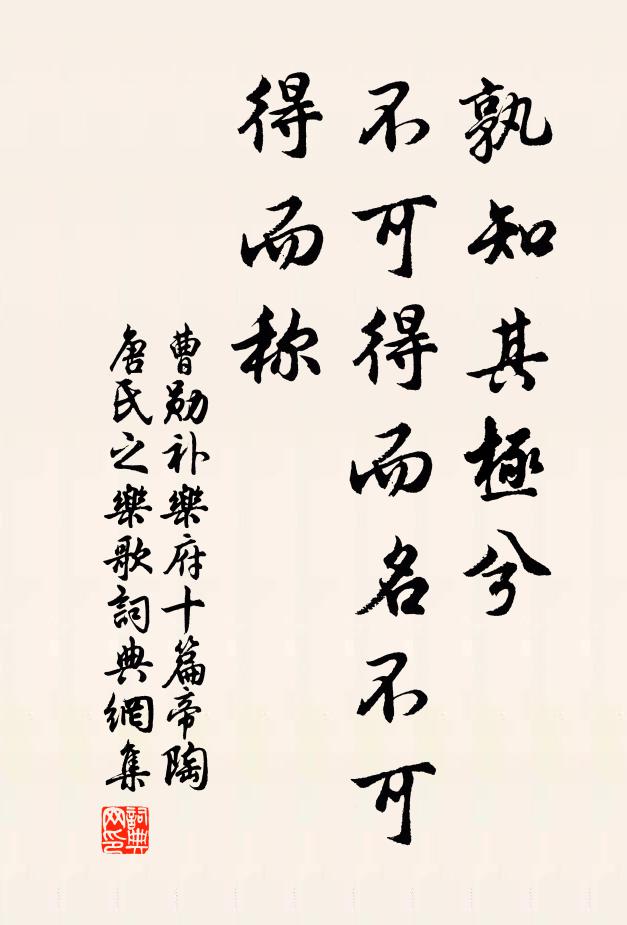 孰知其極兮
不可得而名不可
得而称
曹勋补樂府十篇帝陶
唐氏之樂歌詞典網集
詞典
网印